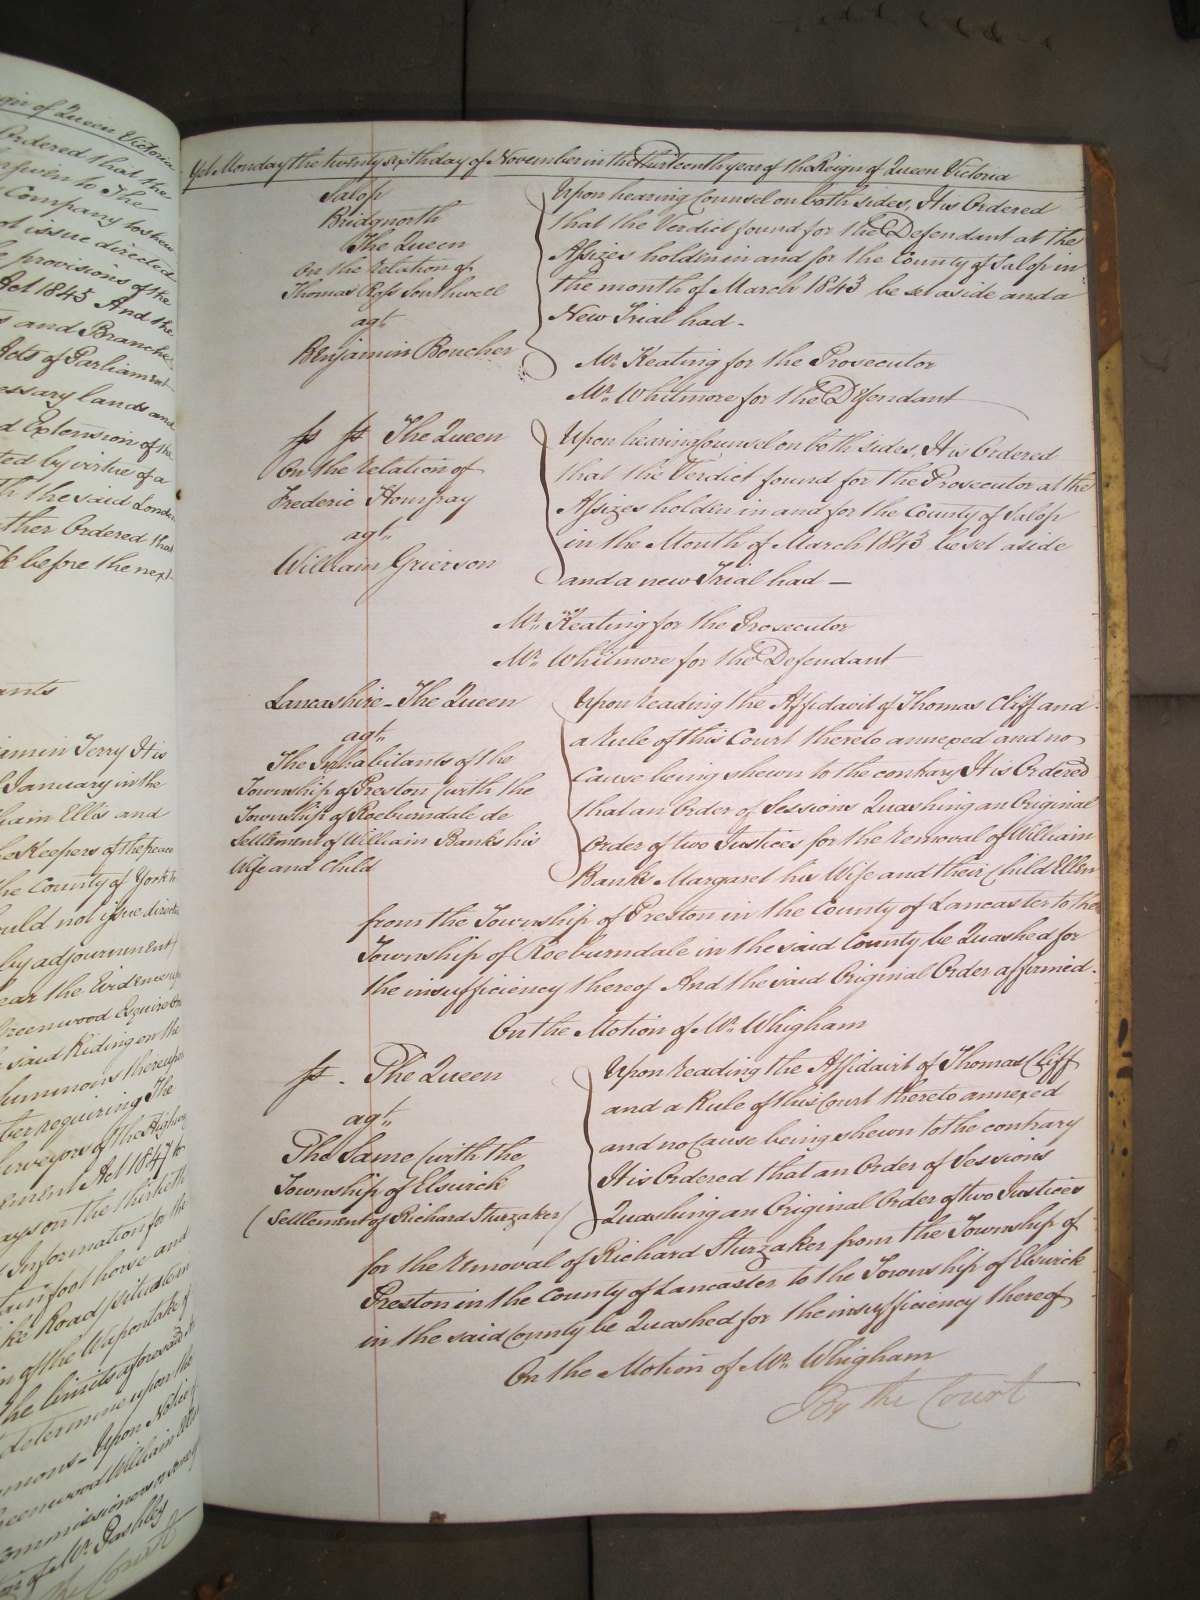 gin of Queen Victoria
Ordered that the
Company to shew
not issue directed
provisions of the
Act 1845 And the
and Branche
Acts of Parliament
essary lands and
d Extension of the
ted by virtue of a
the said London
ther Ordered that
k before the next
ants
jamin Terry It is
January in the
liam Ellis and
he Keepers of the peace
the County of York
ould not issue directed
by adjournment
ear the Evidence
Greenwood Esquire
said Riding on the
Summons thereupon
requiring The
Surveyors of the Highway
Act 1847 to
ays on the thirtieth
Information for the
foot horse and
Road situate in
n of the Wapontake of
the limits aforesaid
determine upon the
mons - Upon Notice
Greenwood William Ellis
ommissioners or some
of Mr. Pashley
the Court
Yet Monday the twenty sixth day of November in the Thirteenth year of the Reign of Queen Victoria
Salop
Bridgnorth
The Queen
On the relation of
Thomas Ross Southwell
agt.
Benjamin Boucher
Upon hearing Counsel on both sides, It is Ordered
that the Verdict found for the Defendant at the
Assizes holden in and for the County of Salop in
the month of March 1843 be set aside and a
New Trial had -
Mr. Keating for the Prosecutor
Mr. Whitmore for the Defendant
ss ss The Queen
On the relation of
Frederic Homfray
agt.
William Grierson
Upon hearing Counsel on both sides, It is Ordered
that the Verdict found for the Prosecutor at the
Assizes holden in and for the County of Salop
in the Month of March 1843 be set aside
and a new Trial had —
Mr. Keating for the Prosecutor
Mr. Whitmore for the Defendant
Lancashire - The Queen
agt.
The Inhabitants of the
Township of Preston (with the
Township of Roeburndale de
Settlement of William Banks his
Wife and Child
Upon reading the Affidavit of Thomas Cliff and
a Rule of this Court thereto annexed and no
Cause being shewn to the contrary It is Ordered
that an Order of Sessions Quashing an Original
Order of two Justices for the removal of William
Banks Margaret his Wife and their Child Ellen
from the Township of Preston in the County of Lancaster to the
Township of Roeburndale in the said County be Quashed for
the insufficiency thereof And the said Original Order affirmed.
On the Motion of Mr. Whigham
ss. The Queen
agt.
The Same (with the
Township of Elswick
(Settlement of Richard Sturzaker)
Upon reading the Affidavit of Thomas Cliff
and a Rule of this Court thereto annexed
and no Cause being shewn to the contrary
It is Ordered that an Order of Sessions
Quashing an Original Order of two Justices
for the removal of Richard Sturzaker from the Township of
Preston in the County of Lancaster to the Township of Elswick
in the said County be Quashed for the insufficiency thereof
On the Motion of Mr. Whigham
By the Court